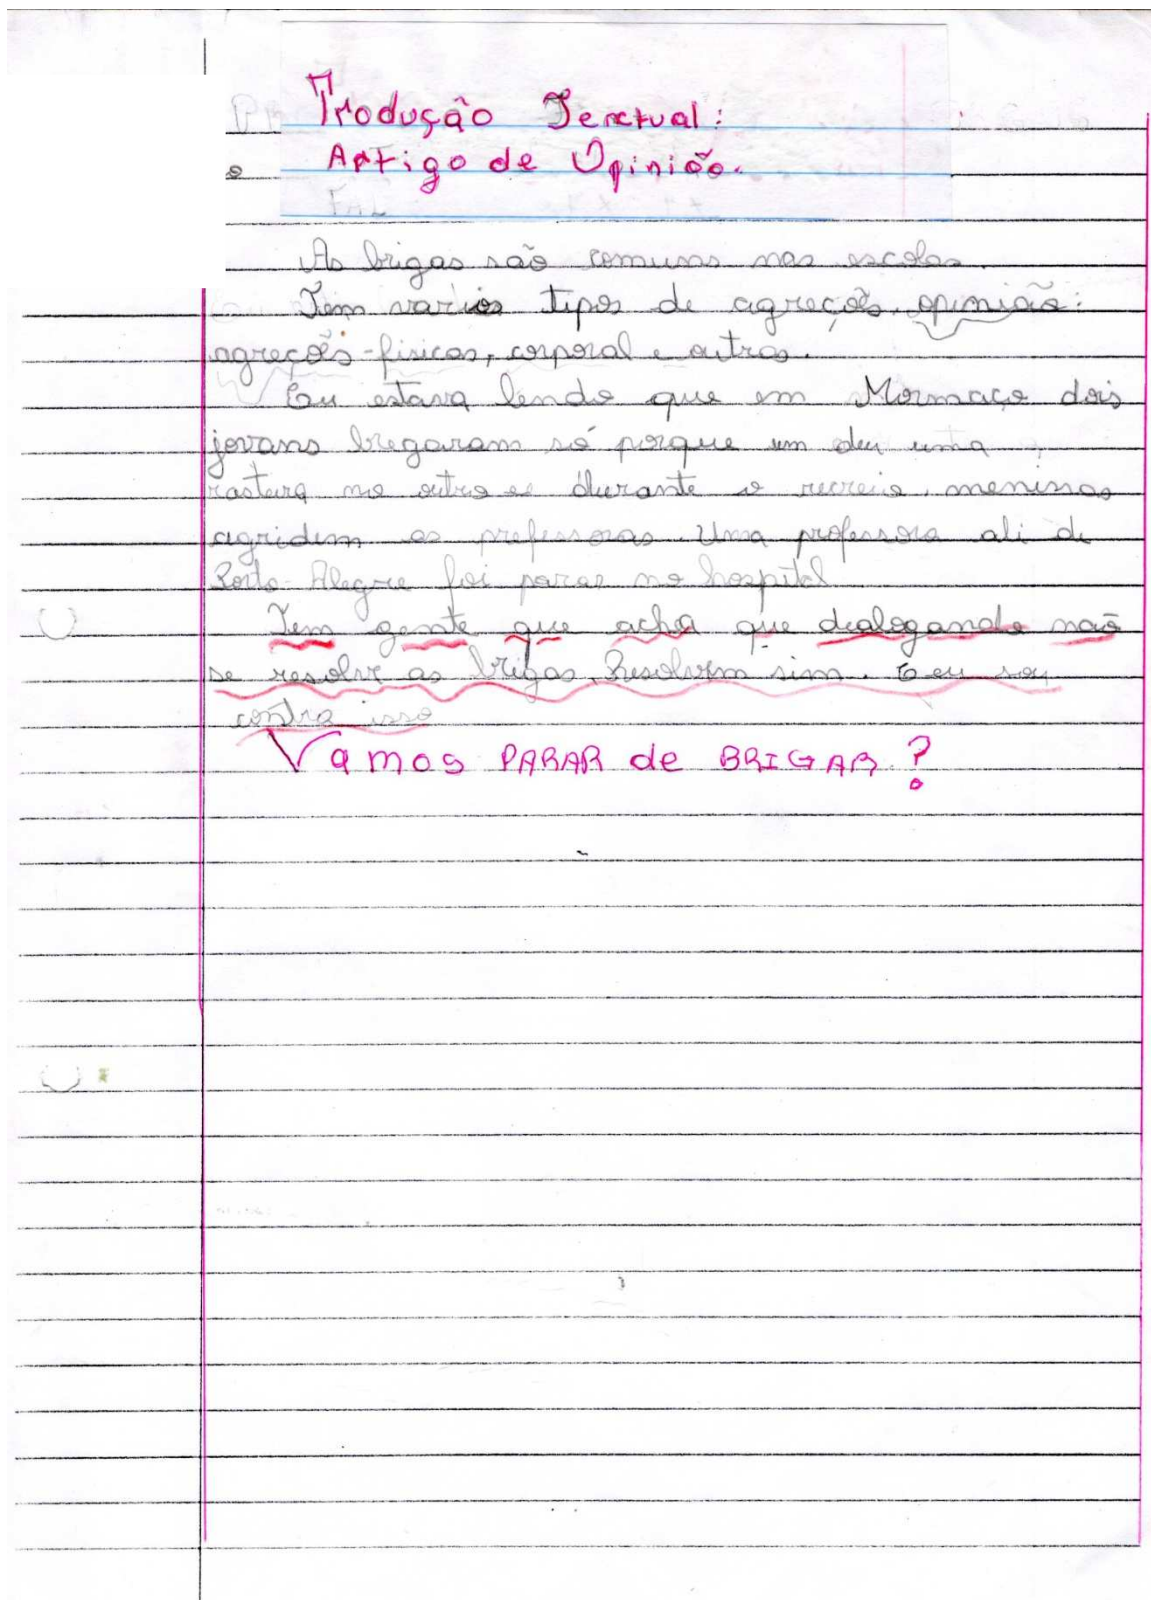 Produção Textual:
Artigo de Opinião.
As brigas são comuns nas escolas.
Tem varios tipos de agreções opinião:
agreções-fisicas, corporal e outras.
Eu estava lendo que em Mormaço dois
jovans bregaram só porque um deu uma
rasteira no outro e durante o recreio, meninos
agridem as professoras. Uma professora ali de
Porto-Alegre foi parar no hospital
Tem gente que acha que dialogando não
se resolve as brigas. Resolvem sim. E eu sou
contra isso
Vamos PARAR de BRIGAR?